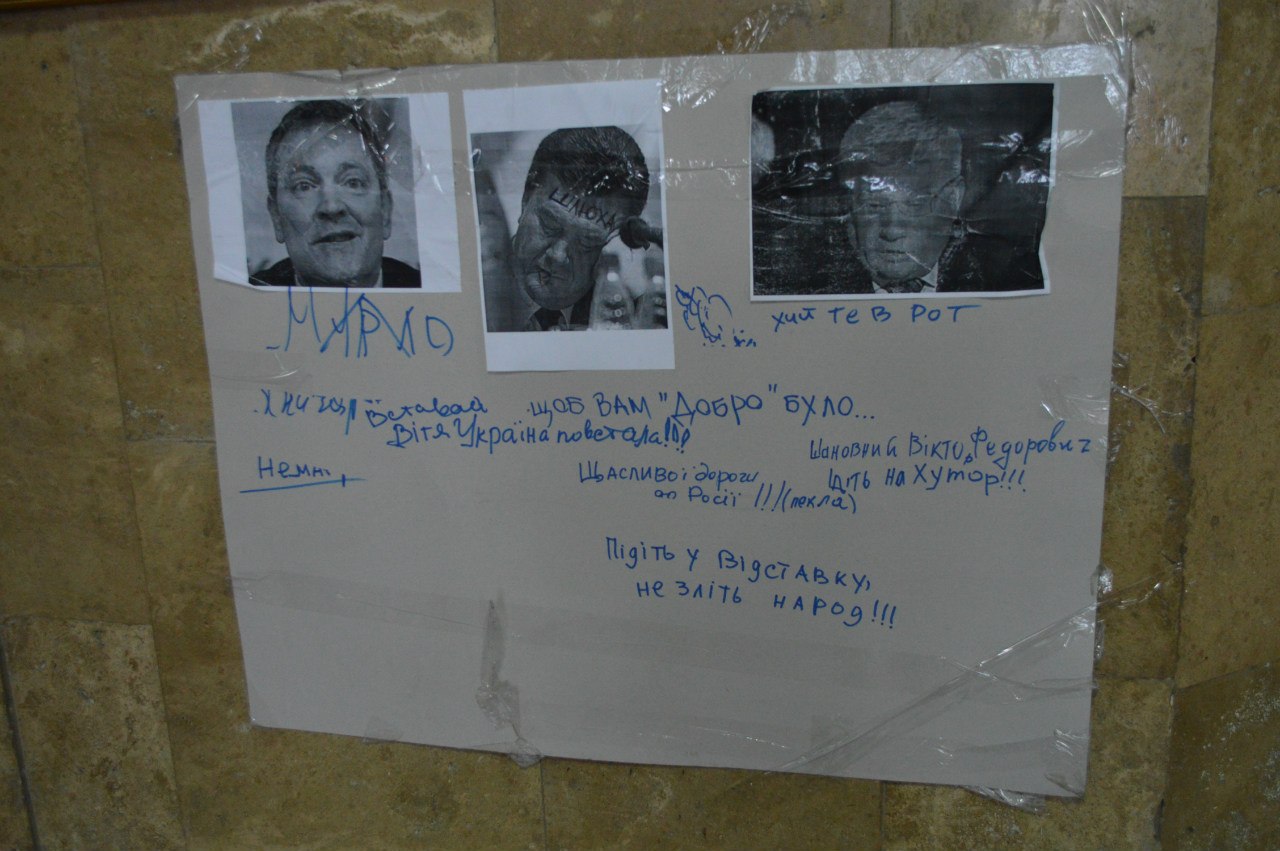 ШЛЮХА
хий те в рот
вставай
Вітя Україна повстала!!!
ЩОБ ВАМ "ДОБРО" БУЛО...
Шановний Віктор Федорович
Ідіть на Хутор!!!
Щасливої дороги
до Росії !!! (пекла)
Підіть у відставку,
не зліть народ!!!